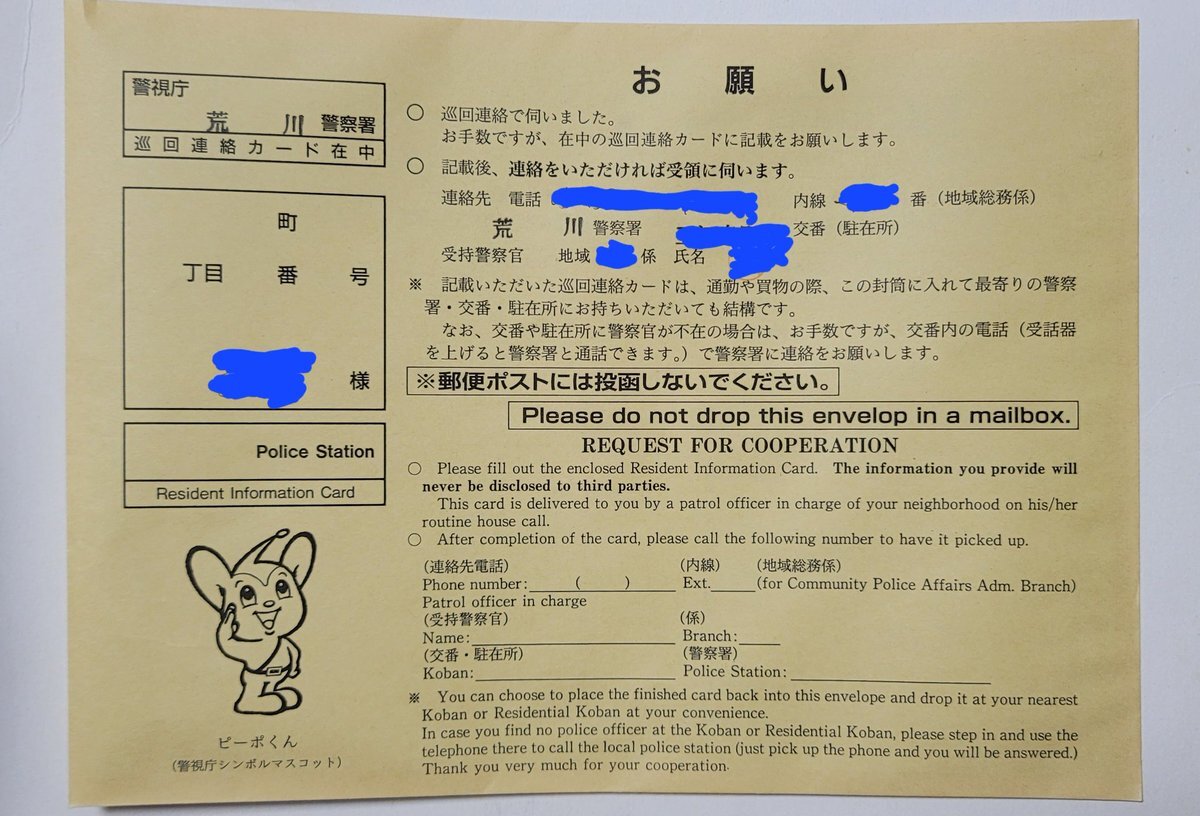 警視庁
荒川警察署
巡回連絡カード在中
町
丁目 番 号
様
Police Station
Resident Information Card
ピーポくん
（警視庁シンボルマスコット）
お願い
○ 巡回連絡で伺いました。
お手数ですが、在中の巡回連絡カードに記載をお願いします。
○ 記載後、連絡をいただければ受領に伺います。
連絡先 電話 内線 番（地域総務係）
荒川警察署 交番（駐在所）
受持警察官 地域 係 氏名
※ 記載いただいた巡回連絡カードは、通勤や買物の際、この封筒に入れて最寄りの警察
署・交番・駐在所にお持ちいただいても結構です。
なお、交番や駐在所に警察官が不在の場合は、お手数ですが、交番内の電話（受話器
を上げると警察署と通話できます。）で警察署に連絡をお願いします。
※郵便ポストには投函しないでください。
Please do not drop this envelop in a mailbox.
REQUEST FOR COOPERATION
○ Please fill out the enclosed Resident Information Card. The information you provide will
never be disclosed to third parties.
This card is delivered to you by a patrol officer in charge of your neighborhood on his/her
routine house call.
○ After completion of the card, please call the following number to have it picked up.
（連絡先電話） （内線） （地域総務係）
Phone number: ( ) Ext. (for Community Police Affairs Adm. Branch)
Patrol officer in charge
（受持警察官） （係）
Name: Branch:
（交番・駐在所） （警察署）
Koban: Police Station:
※ You can choose to place the finished card back into this envelope and drop it at your nearest
Koban or Residential Koban at your convenience.
In case you find no police officer at the Koban or Residential Koban, please step in and use the
telephone there to call the local police station (just pick up the phone and you will be answered.)
Thank you very much for your cooperation.